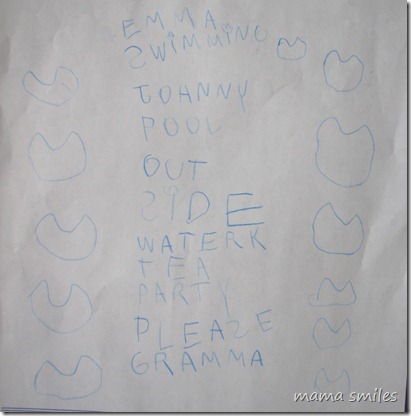 EMMA
SWIMMING
JOHANNY
POOL
OUT
SIDE
WATERK
TEA
PARTY
PLEASE
GRAMMA
mama smiles